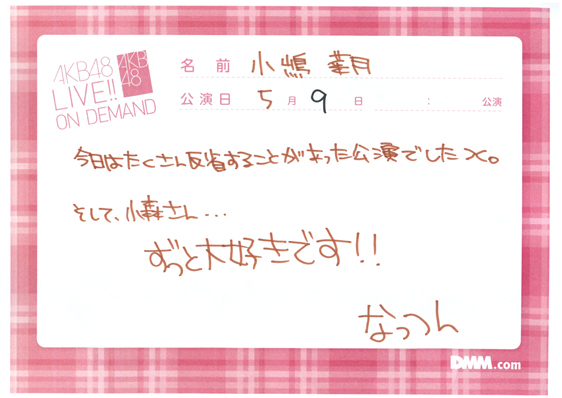 AKB48
LIVE!!
ON DEMAND
AKB
48
名前 小嶋 菜月
公演日 5月9日 : 公演
今日はたくさん反省することがあった公演でした><。
そして、小森さん・・・
ずっと大好きです!!
なっつん
DMM.com